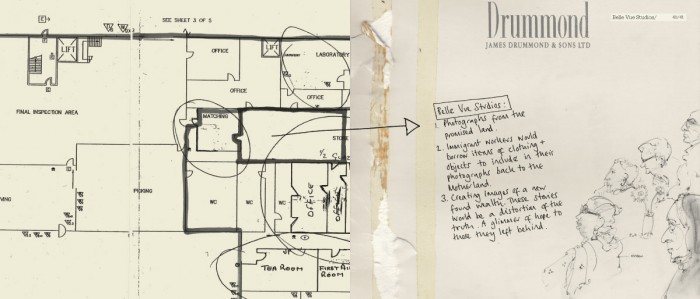 SEE SHEET 3 OF 5
E
LIFT
LIFT
OFFICE
LABORATORY
OFFICE
OFFICE
FINAL INSPECTION AREA
MATCHING
STORE
1/2
PICKING
WC
WC
OFFICE
OFFICE
VING
UP
TEA
ROOM
FIRST AID
ROOM
Drummond
JAMES DRUMMOND & SONS LTD
Belle Vue Studios/
Belle Vue Studios:
1. Photographs from the
promised land.
2. Immigrant workers would
borrow items of clothing +
objects to include in their
photographs back to the
Motherland.
3. Creating images of a new
found wealth. These stories
would be a distortion of the
truth. A glimmer of hope to
those they left behind.